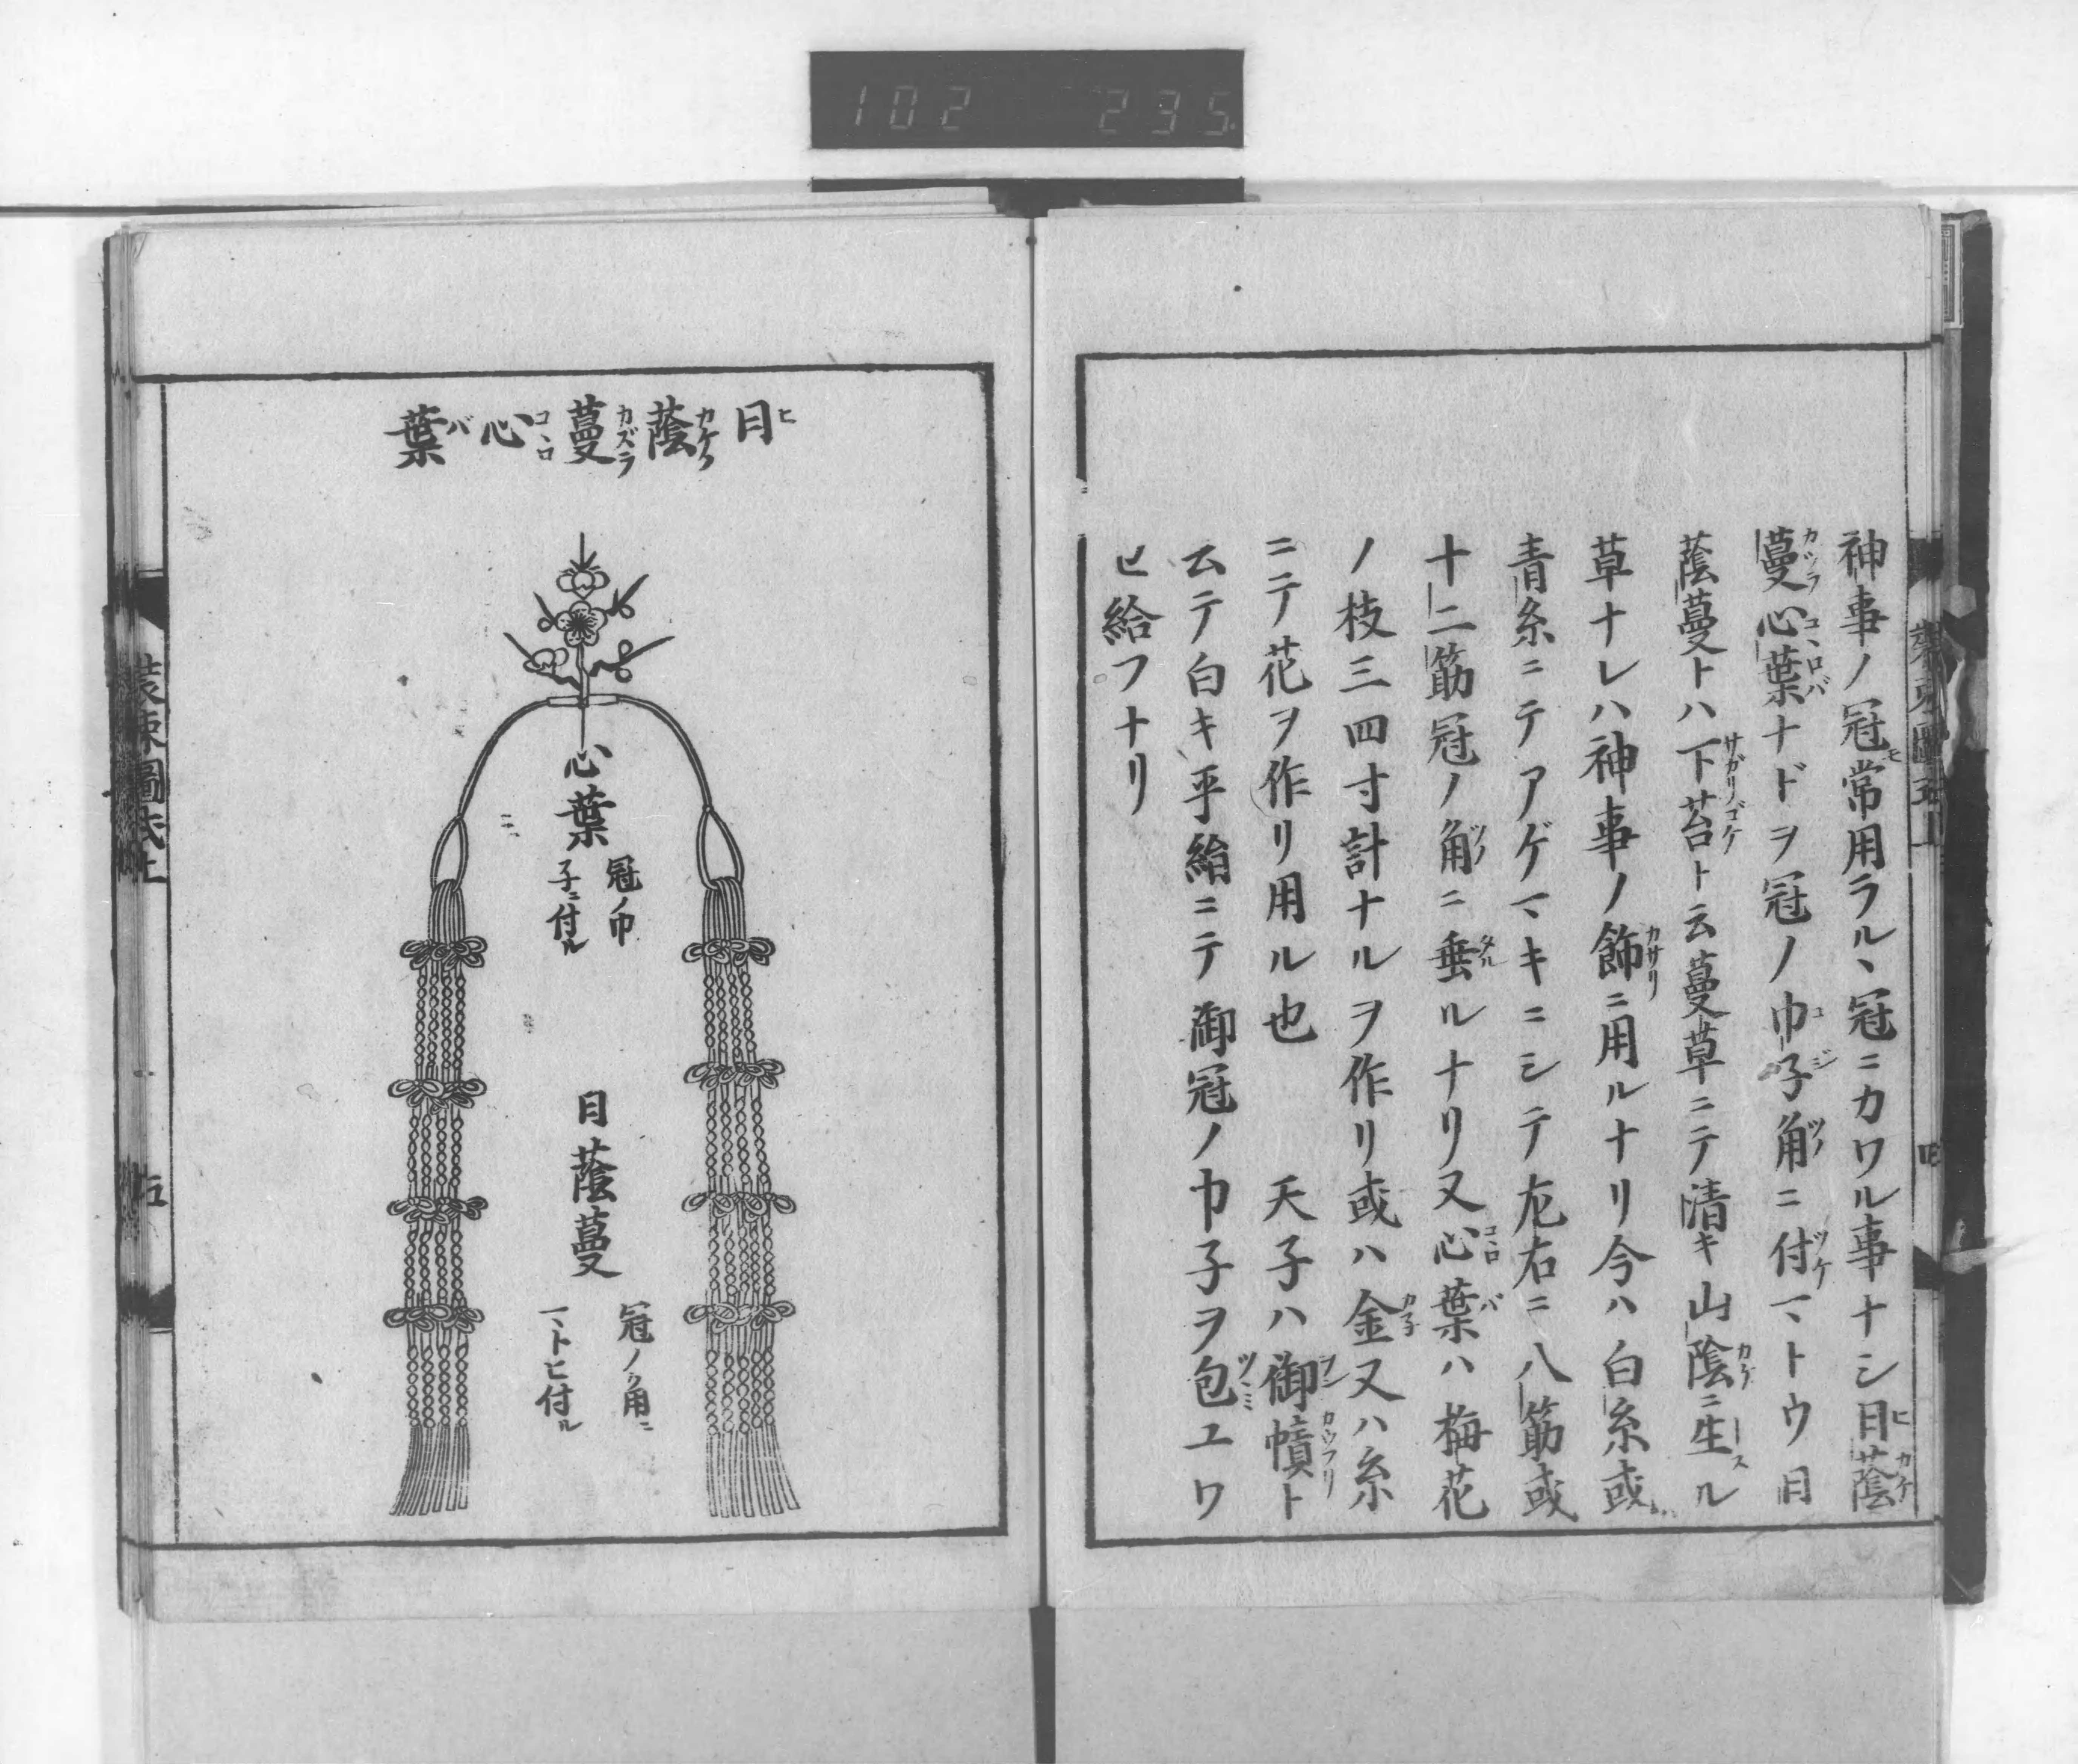 102 235
神事ノ冠モ常用ラルヽ冠ニカワル事ナシ日蔭
蔓心葉ナドヲ冠ノ巾子角ニ付マトウ日
蔭蔓トハ下苔ト云蔓草ニテ清キ山陰ニ生ル
草ナレハ神事ノ飾ニ用ルナリ今ハ白糸或ハ
青糸ニテアゲマキニシテ左右ニ八筋或
十二筋冠ノ角ニ垂ルナリ又心葉ハ梅花
ノ枝三四寸計ナルヲ作リ或ハ金又ハ糸
ニテ花ヲ作リ用ル也 天子ハ御幘ト
云テ白キ平絹ニテ御冠ノ巾子ヲ包ユワ
ヒ給フナリ
日蔭蔓心葉
ヒ カケ カズラ コヽロ バ
心葉
冠ノ巾
子ニ付ル
日蔭蔓
冠ノ角ニ
マトヒ付ル
装束圖式上
五